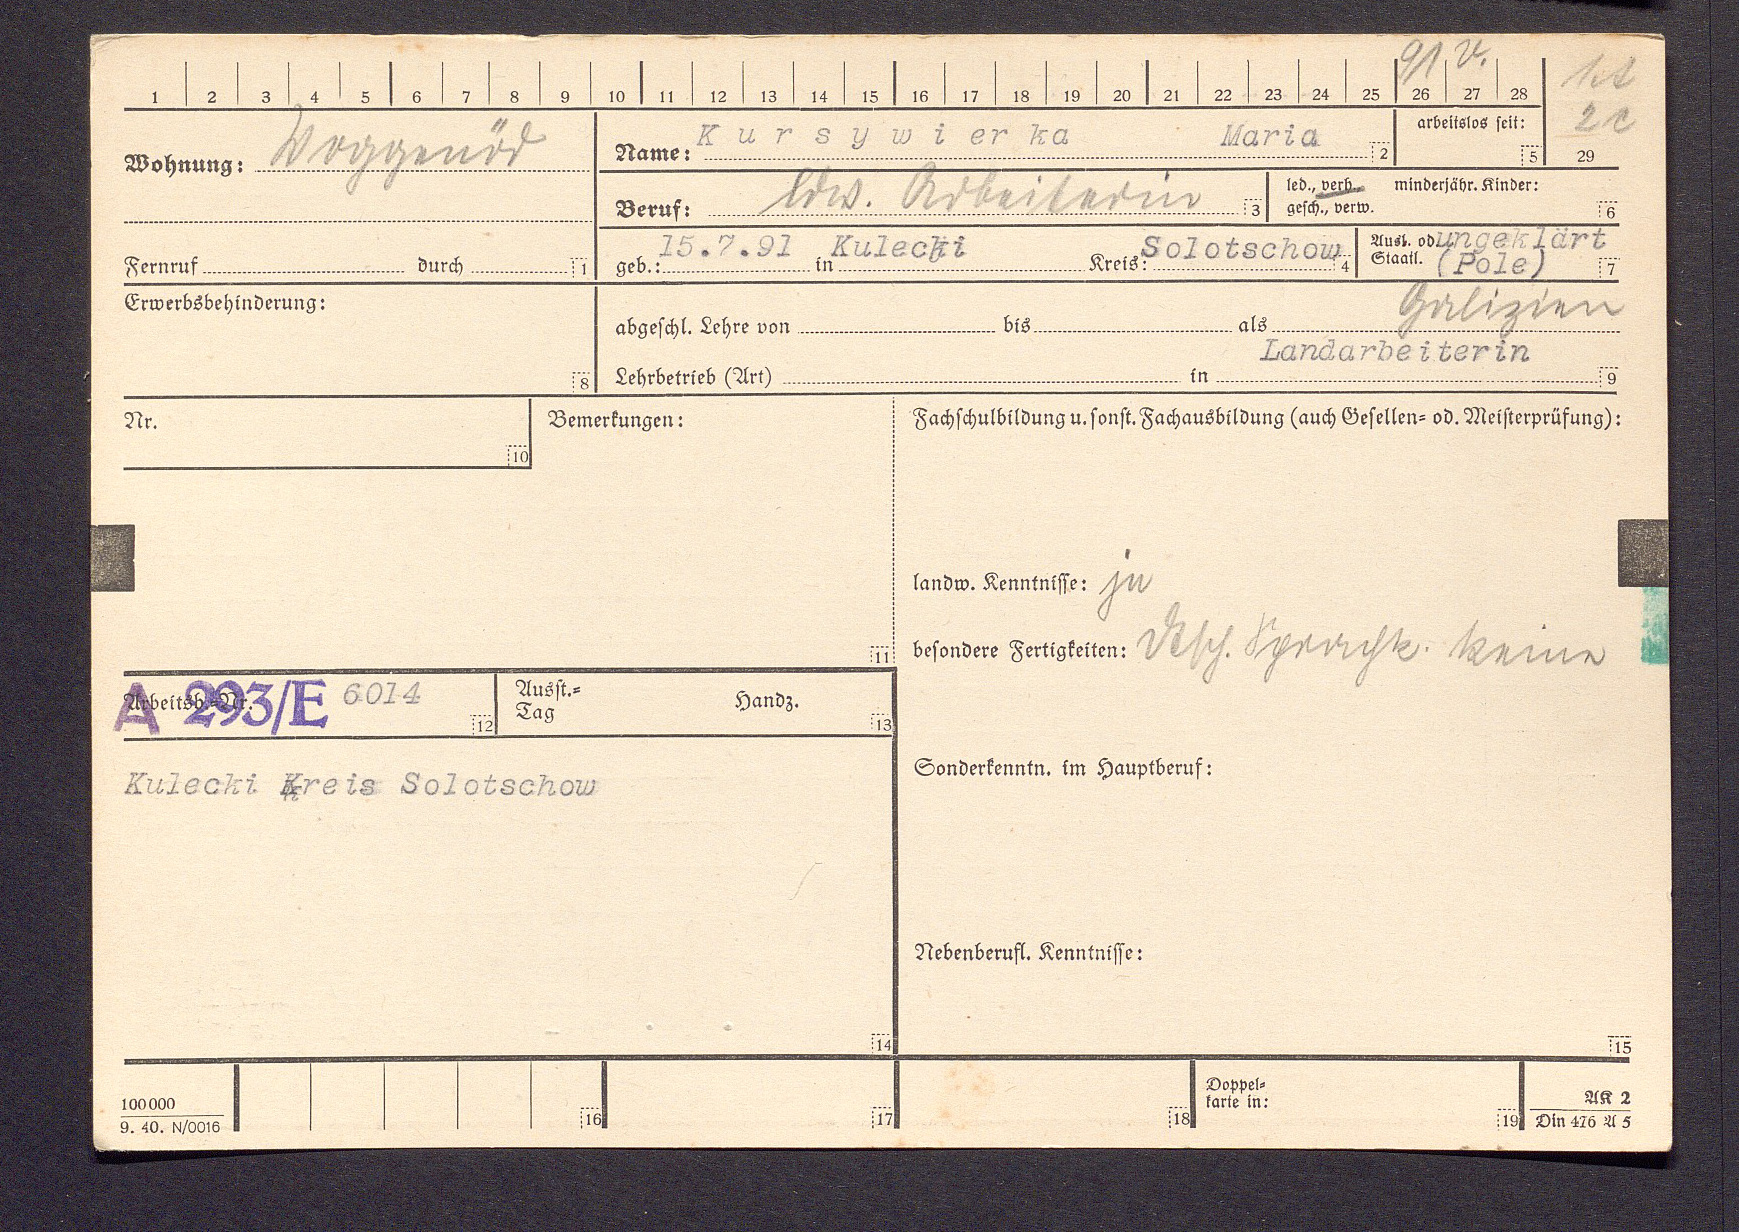 91 v.
1 2 3 4 5 6 7 8 9 10 11 12 13 14 15 16 17 18 19 20 21 22 23 24 25 26 27 28
2c
29
Wohnung: Woggenöd
Name: Kursywierka Maria 2
arbeitslos seit: 5
Beruf: ldw. Arbeiterin 3
led., verh., minderjähr. Kinder:
gesch., verw. 6
Fernruf durch 1
geb.: 15.7.91 in Kulecki Kreis: Solotschow 4
Ausl. od. ungeklärt
Staatl. (Pole) 7
Erwerbsbehinderung: 8
Galizien
abgeschl. Lehre von bis als
Landarbeiterin
Lehrbetrieb (Art) in 9
Nr. 10
Bemerkungen: 11
Fachschulbildung u. sonst. Fachausbildung (auch Gesellen- od. Meisterprüfung):
landw. Kenntnisse: ja
besondere Fertigkeiten: Dtsch. Sprachk. keine
Arbeitsb.-Nr. A 293/E 6014 12
Ausst.- Handz.
Tag 13
Kulecki Kreis Solotschow
14
Sonderkenntn. im Hauptberuf:
Nebenberufl. Kenntnisse:
15
100000
9. 40. N/0016
16 17 18
Doppel-
karte in: 19
AK 2
Din 476 A 5